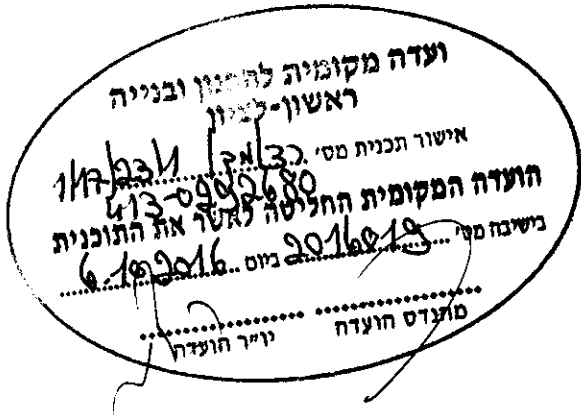 ועדה מקומית לתכנון ובנייה
ראשון-לציון
אישור תכנית מס׳ רצ/מק/1/17/23/1
413-0292680
הועדה המקומית החליטה לאשר את התוכנית
בישיבה מס׳ 2016019 ביום 6.10.2016
מהנדס הועדה יו״ר הועדה